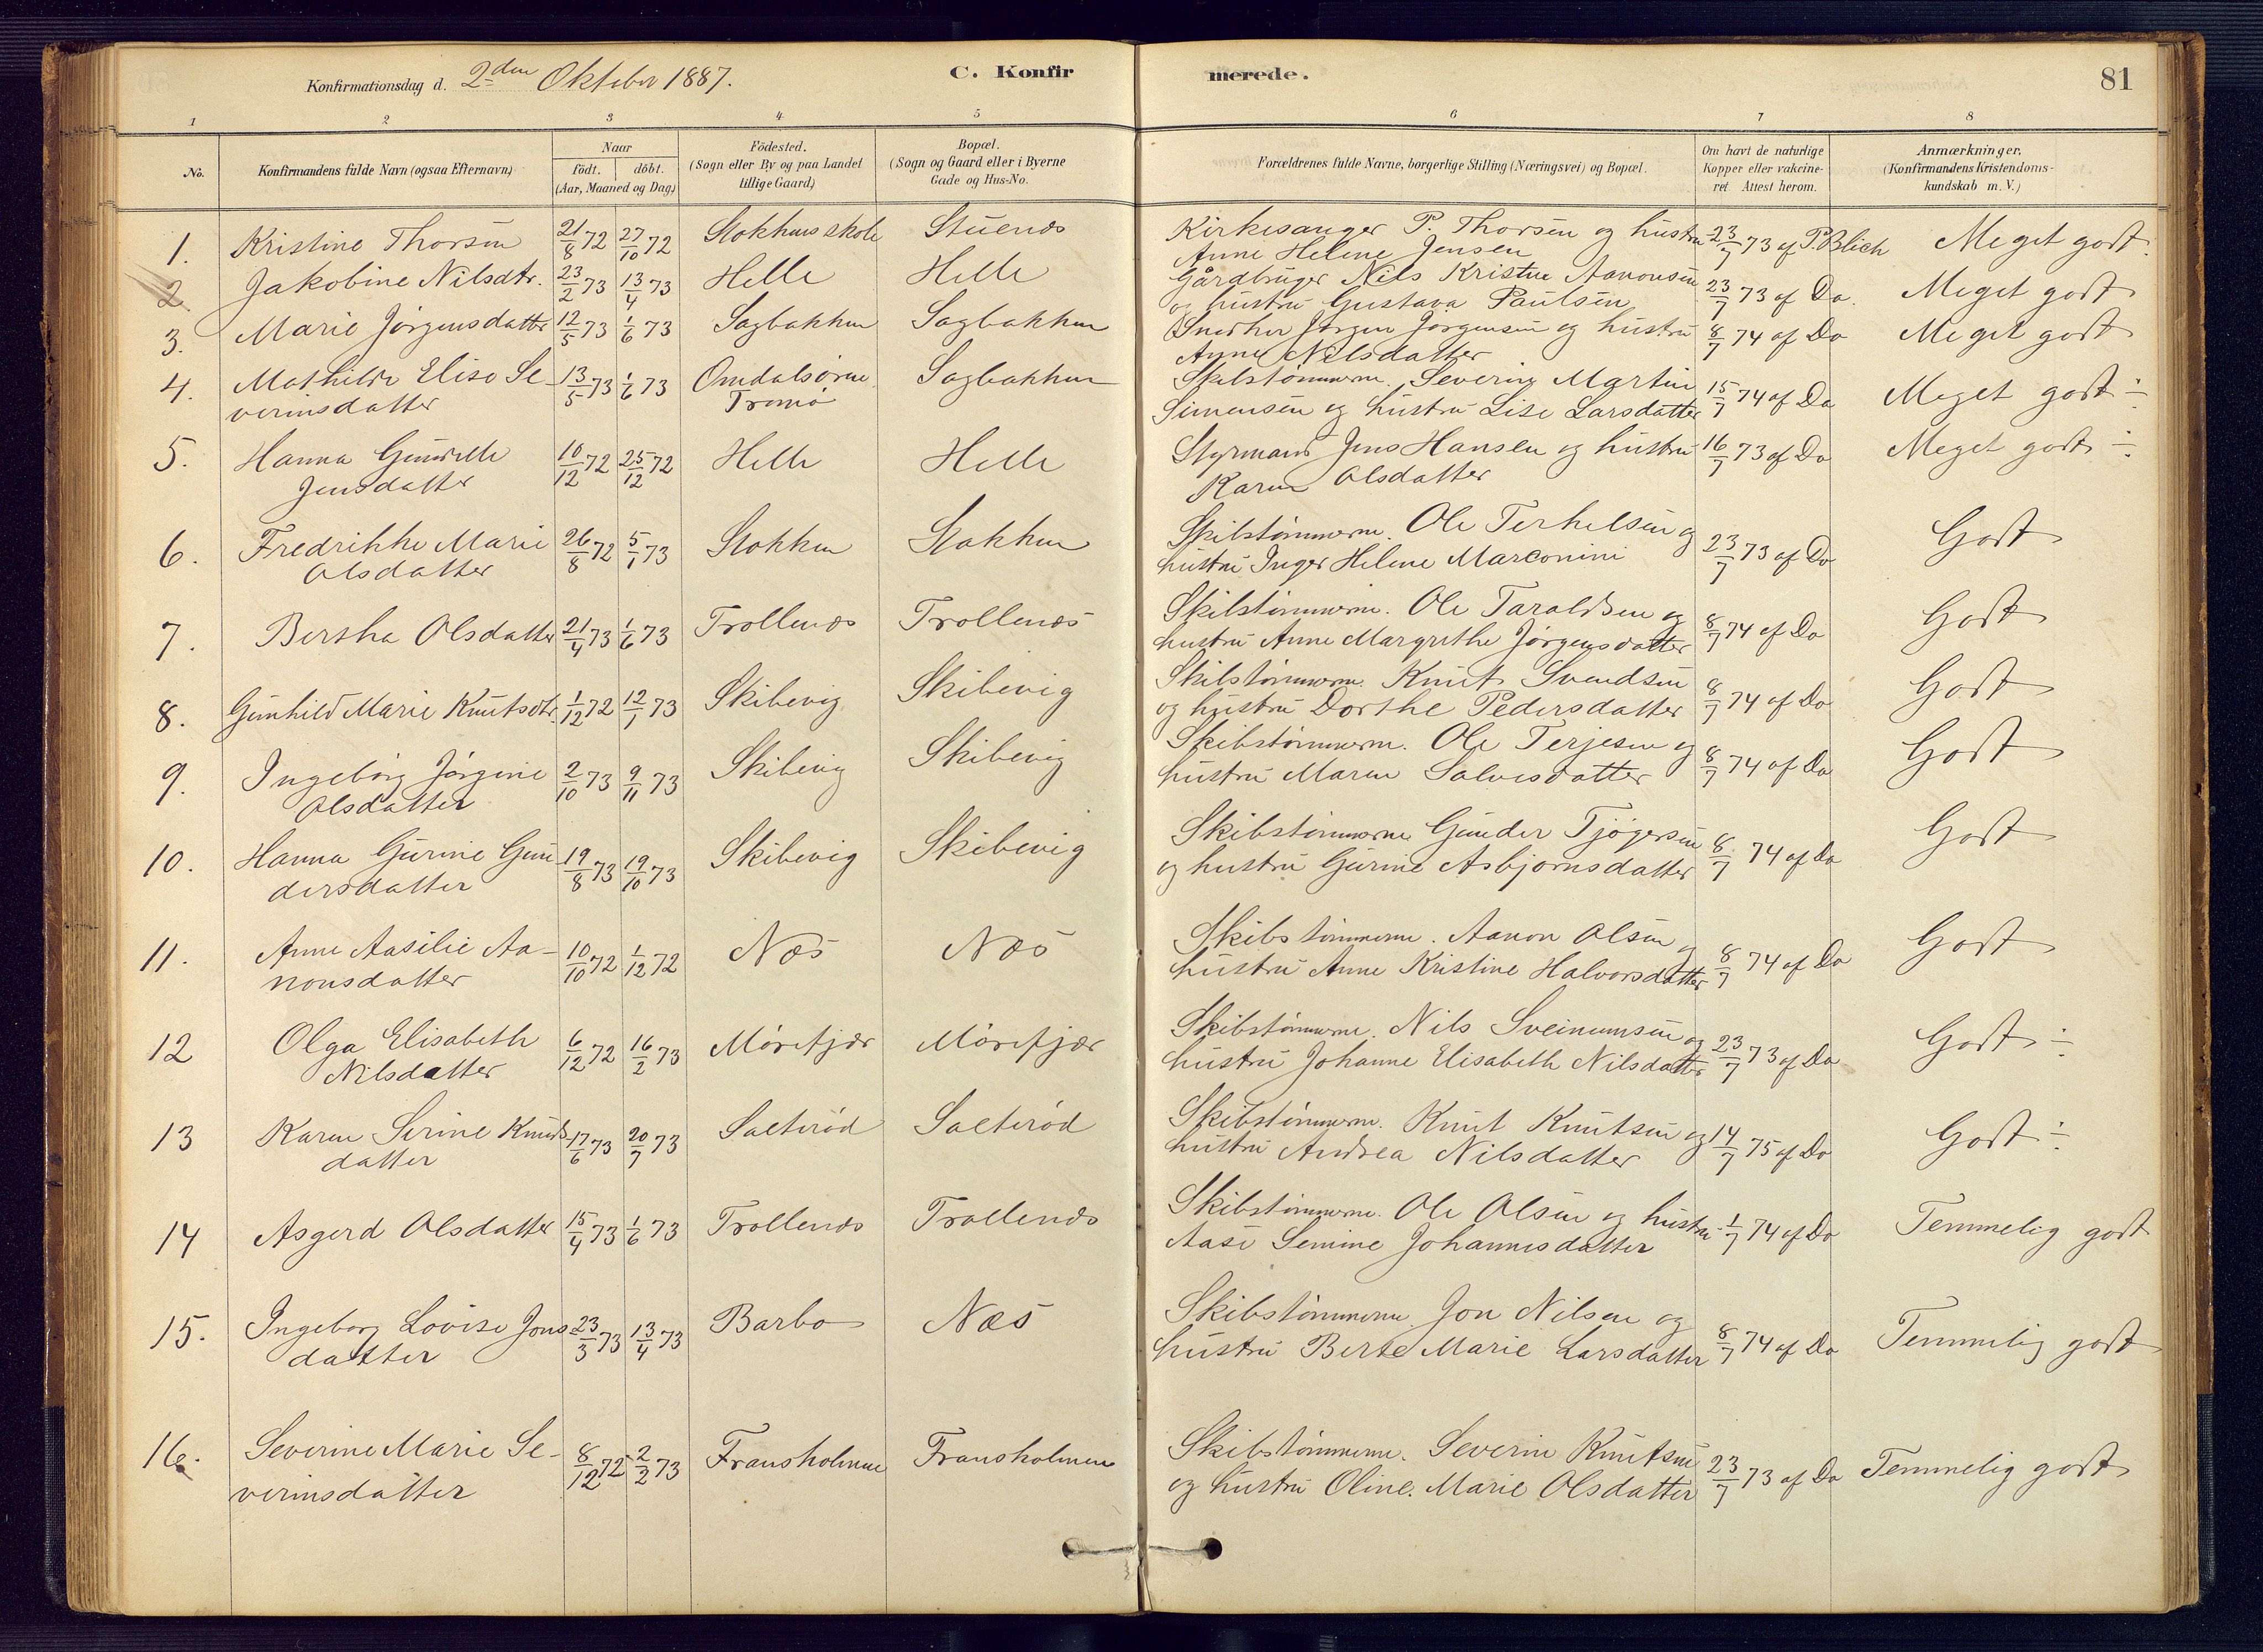 Konfirmationsdag d. 2den Oktober 1887.
C. Konfirmerede.
81
1 2 3 4 5 6 7 8
No. Konfirmandens fulde Navn (ogsaa Efternavn) Naar födt. döbt. (Aar, Maaned og Dag) Födested. (Sogn eller By og paa Landet tillige Gaard) Bopæl. (Sogn og Gaard eller i Byerne Gade og Hus-No. Forældrenes fulde Navne, borgerlige Stilling (Næringsvei) og Bopæl. Om havt de naturlige Kopper eller vakcineret Attest herom. Anmærkninger. (Konfirmandens Kristendomskundskab m. V.)
1. Kristine Thorsen 21/8 72 27/10 72 Stokkens skole Stuenæs Kirkesanger P. Thorsen og hustru 23/7 73 af P. Blich Meget godt
Anne Helene Jensen
2 Jakobine Nilsdtr. 23/2 73 13/4 73 Helle Helle Gårdbruger Nils Kristen Aanonsen 23/7 73 af Do. Meget godt
og hustru Gustava Paulsen
3. Marie Jörgensdatter 12/5 73 1/6 73 Sagbakken Sagbakken Snedker Jörgen Jörgensen og hustru 8/7 74 af Do Meget godt
Anne Nilsdatter
4. Mathilde Elise Se- 13/5 73 1/6 73 Omdalsörne Sagbakken Skibstömmerm. Severin Martin 15/7 74 af Do Meget godt ÷
verinsdatter Tromö Simensen og hustru Lise Larsdatter
5. Hanna Gunvelle 10/12 72 25/12 72 Helle Helle Styrmand Jens Hansen og hustru 16/7 73 af Do Meget godt ÷
Jensdatter Karen Olsdatter
6. Fredrikke Marie 26/8 72 5/1 73 Stokken Stokken Skibstömmerm. Ole Terkelsen og 23/7 73 af Do Godt
Olsdatter hustru Inger Helene Marconini
7. Bertha Olsdatter 21/4 73 1/6 73 Trollenæs Trollenæs Skibstömmerm. Ole Taraldsen og 8/7 74 af Do Godt
hustru Anne Margrethe Jörgensdatter
8. Gunhild Marie Knutsdtr. 1/12 72 12/1 73 Skibevig Skibevig Skibstömmerm. Knut Svendsen 8/7 74 af Do Godt
og hustru Dorthe Pedersdatter
9. Ingeborg Jörgine 2/10 73 9/11 73 Skibevig Skibevig Skibstömmerm. Ole Terjesen og 8/7 74 af Do Godt
Olsdatter hustru Maren Salvesdatter
10. Hanna Gurine Gun- 19/8 73 19/10 73 Skibevig Skibevig Skibstömmerm. Gunder Tjögersen 8/7 74 af Do Godt
dersdatter og hustru Gurine Asbjörnsdatter
11. Anne Aasilie Aa- 10/10 72 1/12 72 Næs Næs Skibstömmerm. Aanon Olsen og 8/7 74 af Do Godt
nonsdatter hustru Anne Kristine Halvorsdatter
12 Olga Elisabeth 6/12 72 16/2 73 Mörefjær Mörefjær Skibstömmerm. Nils Sveinumsen og 23/7 73 af Do Godt ÷
Nilsdatter hustru Johanne Elisabeth Nilsdatter
13 Karen Serine Knuds- 17/6 73 20/7 73 Salteröd Salteröd Skibstömmerm. Knut Knutsen og 14/7 75 af Do Godt ÷
datter hustru Andrea Nilsdatter
14 Asgerd Olsdatter 15/4 73 1/6 73 Trollenæs Trollenæs Skibstömmerm. Ole Olsen og hustru 1/7 74 af Do Temmelig godt
Aase Semine Johannesdatter
15. Ingeborg Lovise Jons- 23/3 73 13/4 73 Barbo Næs Skibstömmerm. Jon Nilsen og 8/7 74 af Do Temmelig godt
datter hustru Berte Marie Larsdatter
16. Severine Marie Se- 8/12 72 2/2 73 Fransholmen Fransholmen Skibstömmerm. Severin Knutsen 23/7 73 af Do Temmelig godt
verinsdatter og hustru Oline Marie Olsdatter